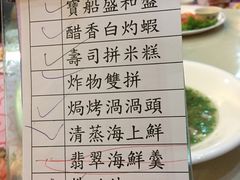 寶船盛和盛
醋香白灼蝦
壽司拼米糕
炸物雙拼
焗烤渦渦頭
清蒸海上鮮
翡翠海鮮羹